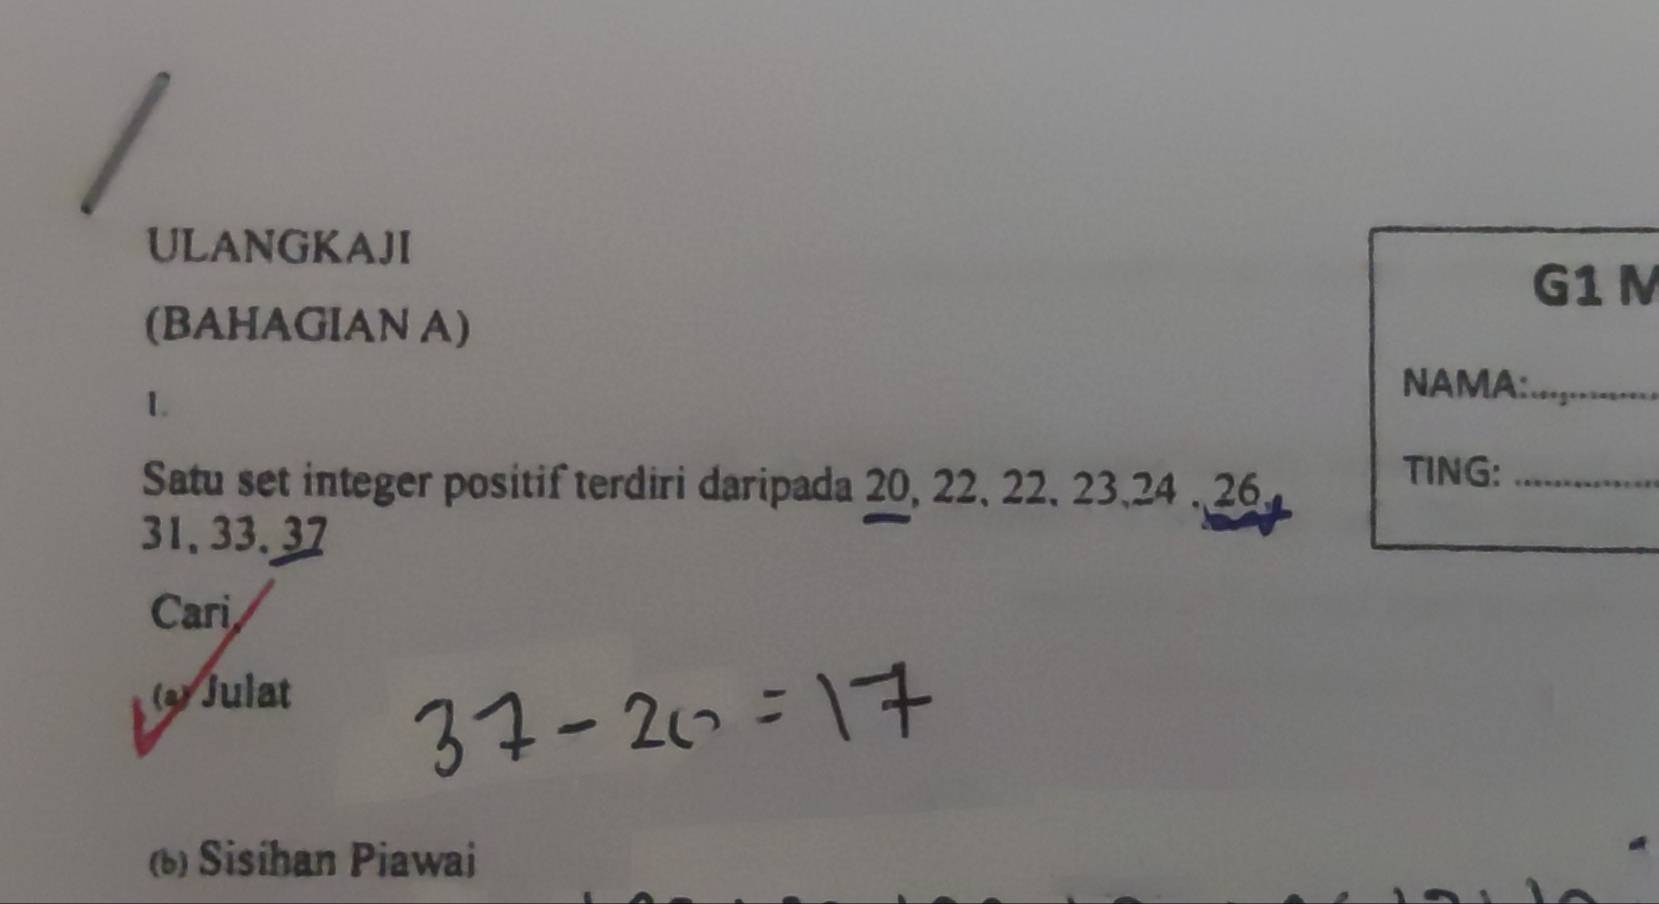 ULANGKAJI
(BAHAGIAN A)
1.
Satu set integer positif terdiri daripada 20, 22, 22, 23,24 , 26,
31, 33, 37
Cari,
(a) Julat
37 - 20 = 17
(b) Sisihan Piawai
G1
NAMA:..............
TING: ..............